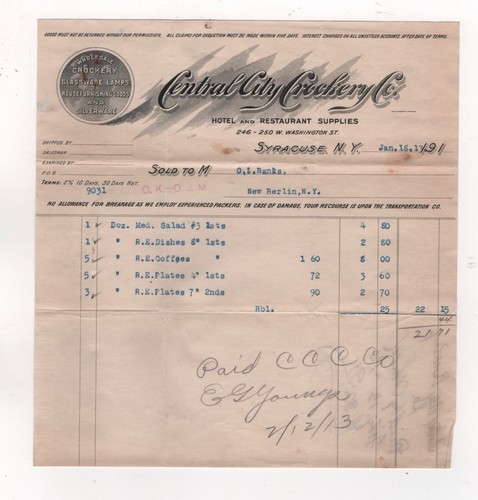 GOODS MUST NOT BE RETURNED WITHOUT OUR PERMISSION. ALL CLAIMS FOR DEDUCTION MUST BE MADE WITHIN FIVE DAYS. INTEREST CHARGED ON ALL UNSETTLED ACCOUNTS AFTER DATE OF TERMS.
WHOLESALE
CROCKERY
GLASSWARE-LAMPS
HOUSEFURNISHING GOODS
AND
SILVERWARE
Central City Crockery Co.
HOTEL AND RESTAURANT SUPPLIES
246-250 W. WASHINGTON ST.
SHIPPED BY
SALESMAN
EXAMINED BY
F.O.B.
SYRACUSE, N.Y. Jan.15.13 191
SOLD TO M C.L.Banks,
TERMS: 2% 10 DAYS, 30 DAYS NET.
9031
O.K.-O.J.M
New Berlin,N.Y.
NO ALLOWANCE FOR BREAKAGE AS WE EMPLOY EXPERIENCED PACKERS. IN CASE OF DAMAGE, YOUR RECOURSE IS UPON THE TRANSPORTATION CO.
1 Doz. Med. Salad #3 1sts 4 80
1 " R.E.Dishes 8" 1sts 2 80
5 " R.E.Coffees " 1 60 8 00
5 " R.E.Plates 4" 1sts 72 3 60
3 " R.E.Plates 7" 2nds 90 2 70
Bbl. 25 22 15
44
21 71
Paid C C C Co
E G Youngs
2/12/13